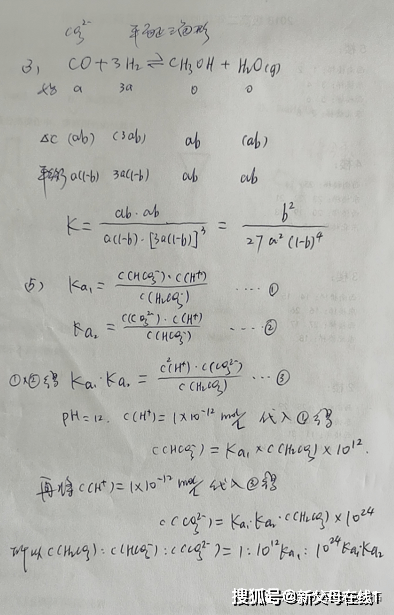 CO₃²⁻ 平面正三角形
3) CO + 3H₂ ⇌ CH₃OH + H₂O(g)
a 3a 0 0
ΔC (ab) (3ab) ab (ab)
平衡 a(1-b) 3a(1-b) ab ab
K = ab·ab / a(1-b)·[3a(1-b)]³ = b² / 27a²(1-b)⁴
5) Ka₁ = C(HCO₃⁻)·C(H⁺) / C(H₂CO₃) ···· ①
Ka₂ = C(CO₃²⁻)·C(H⁺) / C(HCO₃⁻) ···· ②
①×②得 Ka₁·Ka₂ = C²(H⁺)·C(CO₃²⁻) / C(H₂CO₃) ··· ③
PH=12. C(H⁺)=1×10⁻¹² mol/L 代入①得
C(HCO₃⁻) = Ka₁×C(H₂CO₃)×10¹².
再将C(H⁺)=1×10⁻¹² mol/L 代入③得
C(CO₃²⁻)=Ka₁·Ka₂·C(H₂CO₃)×10²⁴
所以C(H₂CO₃):C(HCO₃⁻):C(CO₃²⁻)=1:10¹²Ka₁:10²⁴Ka₁·Ka₂
搜狐号@新父母在线